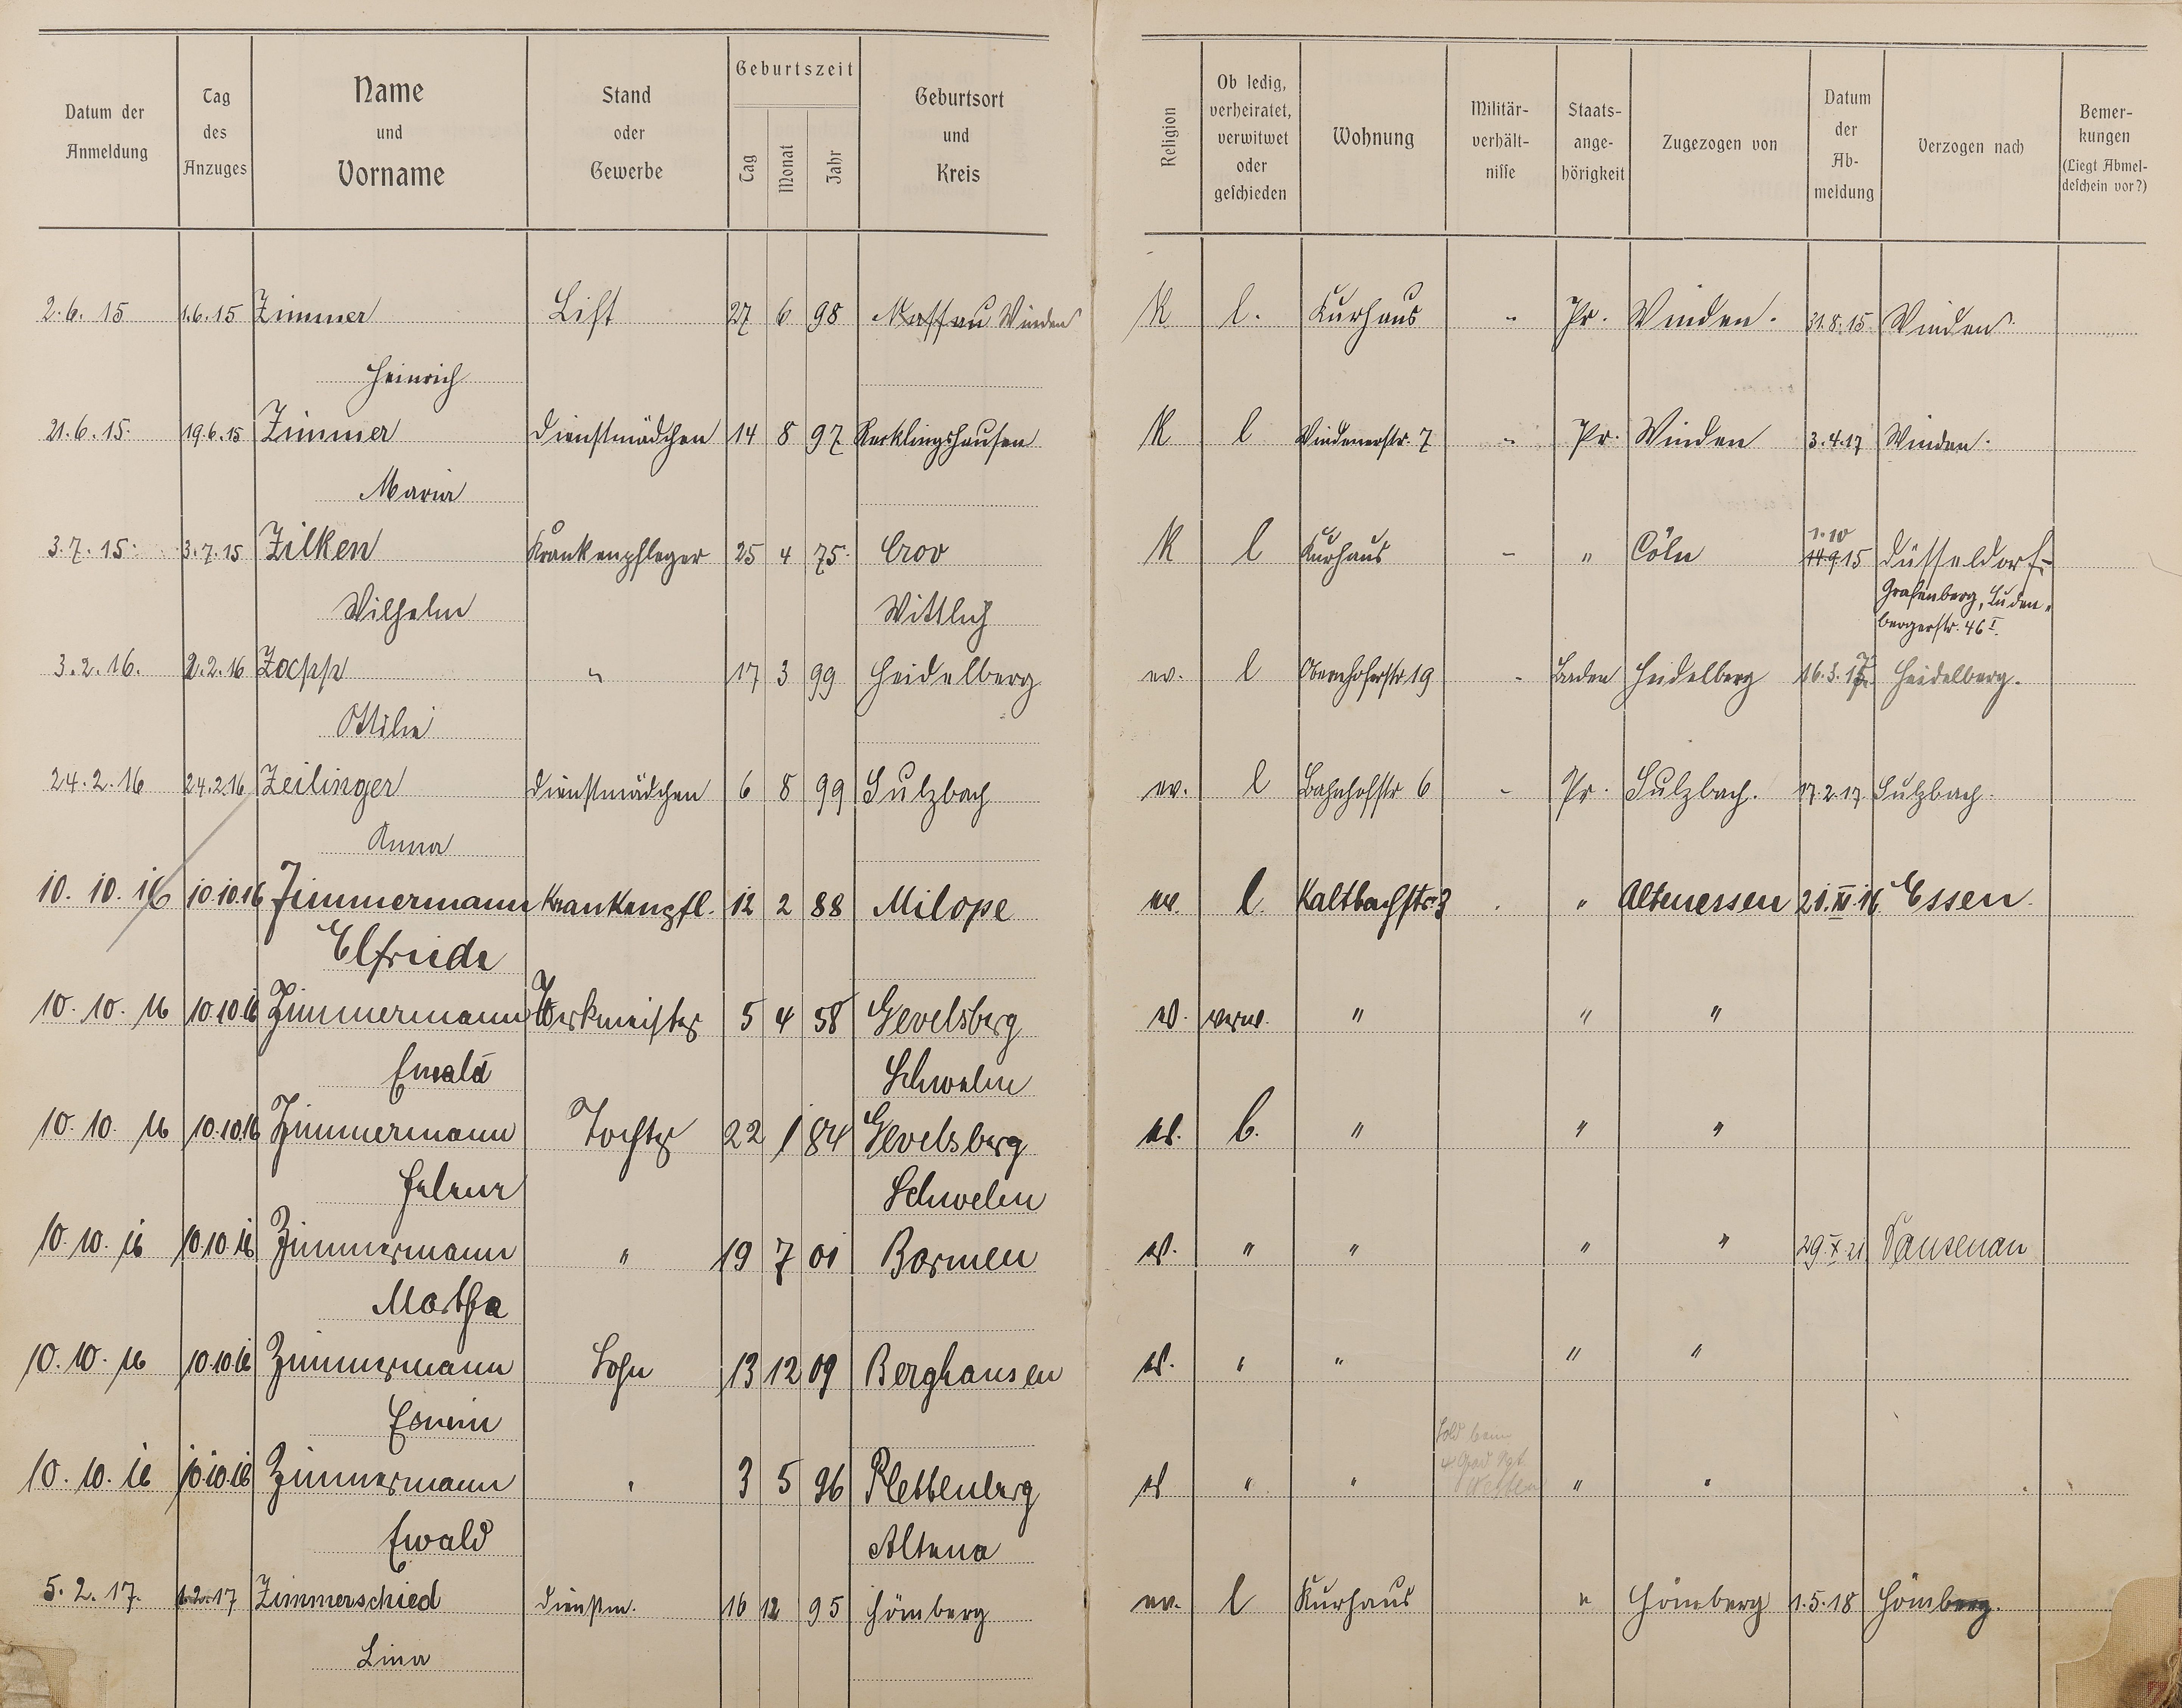 Datum der Anmeldung | Tag des Anzuges | Name und Vorname | Stand oder Gewerbe | Geburtszeit Tag Monat Jahr | Geburtsort und Kreis | Religion | Ob ledig, verheiratet, verwitwet oder geschieden | Wohnung | Militär-verhält-nisse | Staats-ange-hörigkeit | Zugezogen von | Datum der Ab-meldung | Verzogen nach | Bemer-kungen (Liegt Abmel-deschein vor?)
2.6.15 1.6.15 Zimmer Lift 27 6 98 Nassau Winden K l. Kurhaus - Pr. Winden. 31.8.15 Winden.
Heinrich
21.6.15. 19.6.15 Zimmer Dienstmädchen 14 8 97 Recklingshausen K l Windenerstr. 7 - Pr. Winden 3.4.17 Winden.
Maria
1.10
3.7.15. 3.7.15 Zilken Krankenpfleger 25 4 75. Crov K l Kurhaus - " Cöln 14.9 15 Düsseldorf-
Grafenberg, Luden-
Wilhelm Wittlich bergerstr. 46 I.
3.2.16. 2.2.16 Zopp " 17 3 99 Heidelberg ev. l Obernhoferstr 19 - Baden Heidelberg 16.3.17. Heidelberg.
Ottilie
24.2.16 24.2.16 Zeilinger Dienstmädchen 6 8 99 Sulzbach ev. l Bahnhofstr 6 - Pr. Sulzbach. 17.2.17. Sulzbach.
Anna
10.10.16 10.10.16 Zimmermann Krankenpfl. 12 2 88 Milspe ev. l. Kaltbachstr. 3 . " Altenessen 21.XI.16. Essen.
Elfriede
10.10.16 10.10.16 Zimmermann Werkmeister 5 4 58 Gevelsberg ev. verw. " " "
Ewald Schwelm
10.10.16 10.10.16 Zimmermann Tochter 22 1 84 Gevelsberg ev. l. " " "
Helene Schwelm
10.10.16 10.10.16 Zimmermann " 19 7 01 Barmen ev. " " " " 29.X.21. Dausenau
Martha
10.10.16 10.10.16 Zimmermann Sohn 13 12 09 Berghausen ev. " " " "
Erwin
10.10.16 10.10.16 Zimmermann " 3 5 96 Plettenberg ev " " " "
Ewald Altena
5.2.17. 1.2.17 Zimmerschied Dienstm. 16 12 95 Hömberg ev. l Kurhaus " Hömberg 1.5.18 Hömberg.
Lina